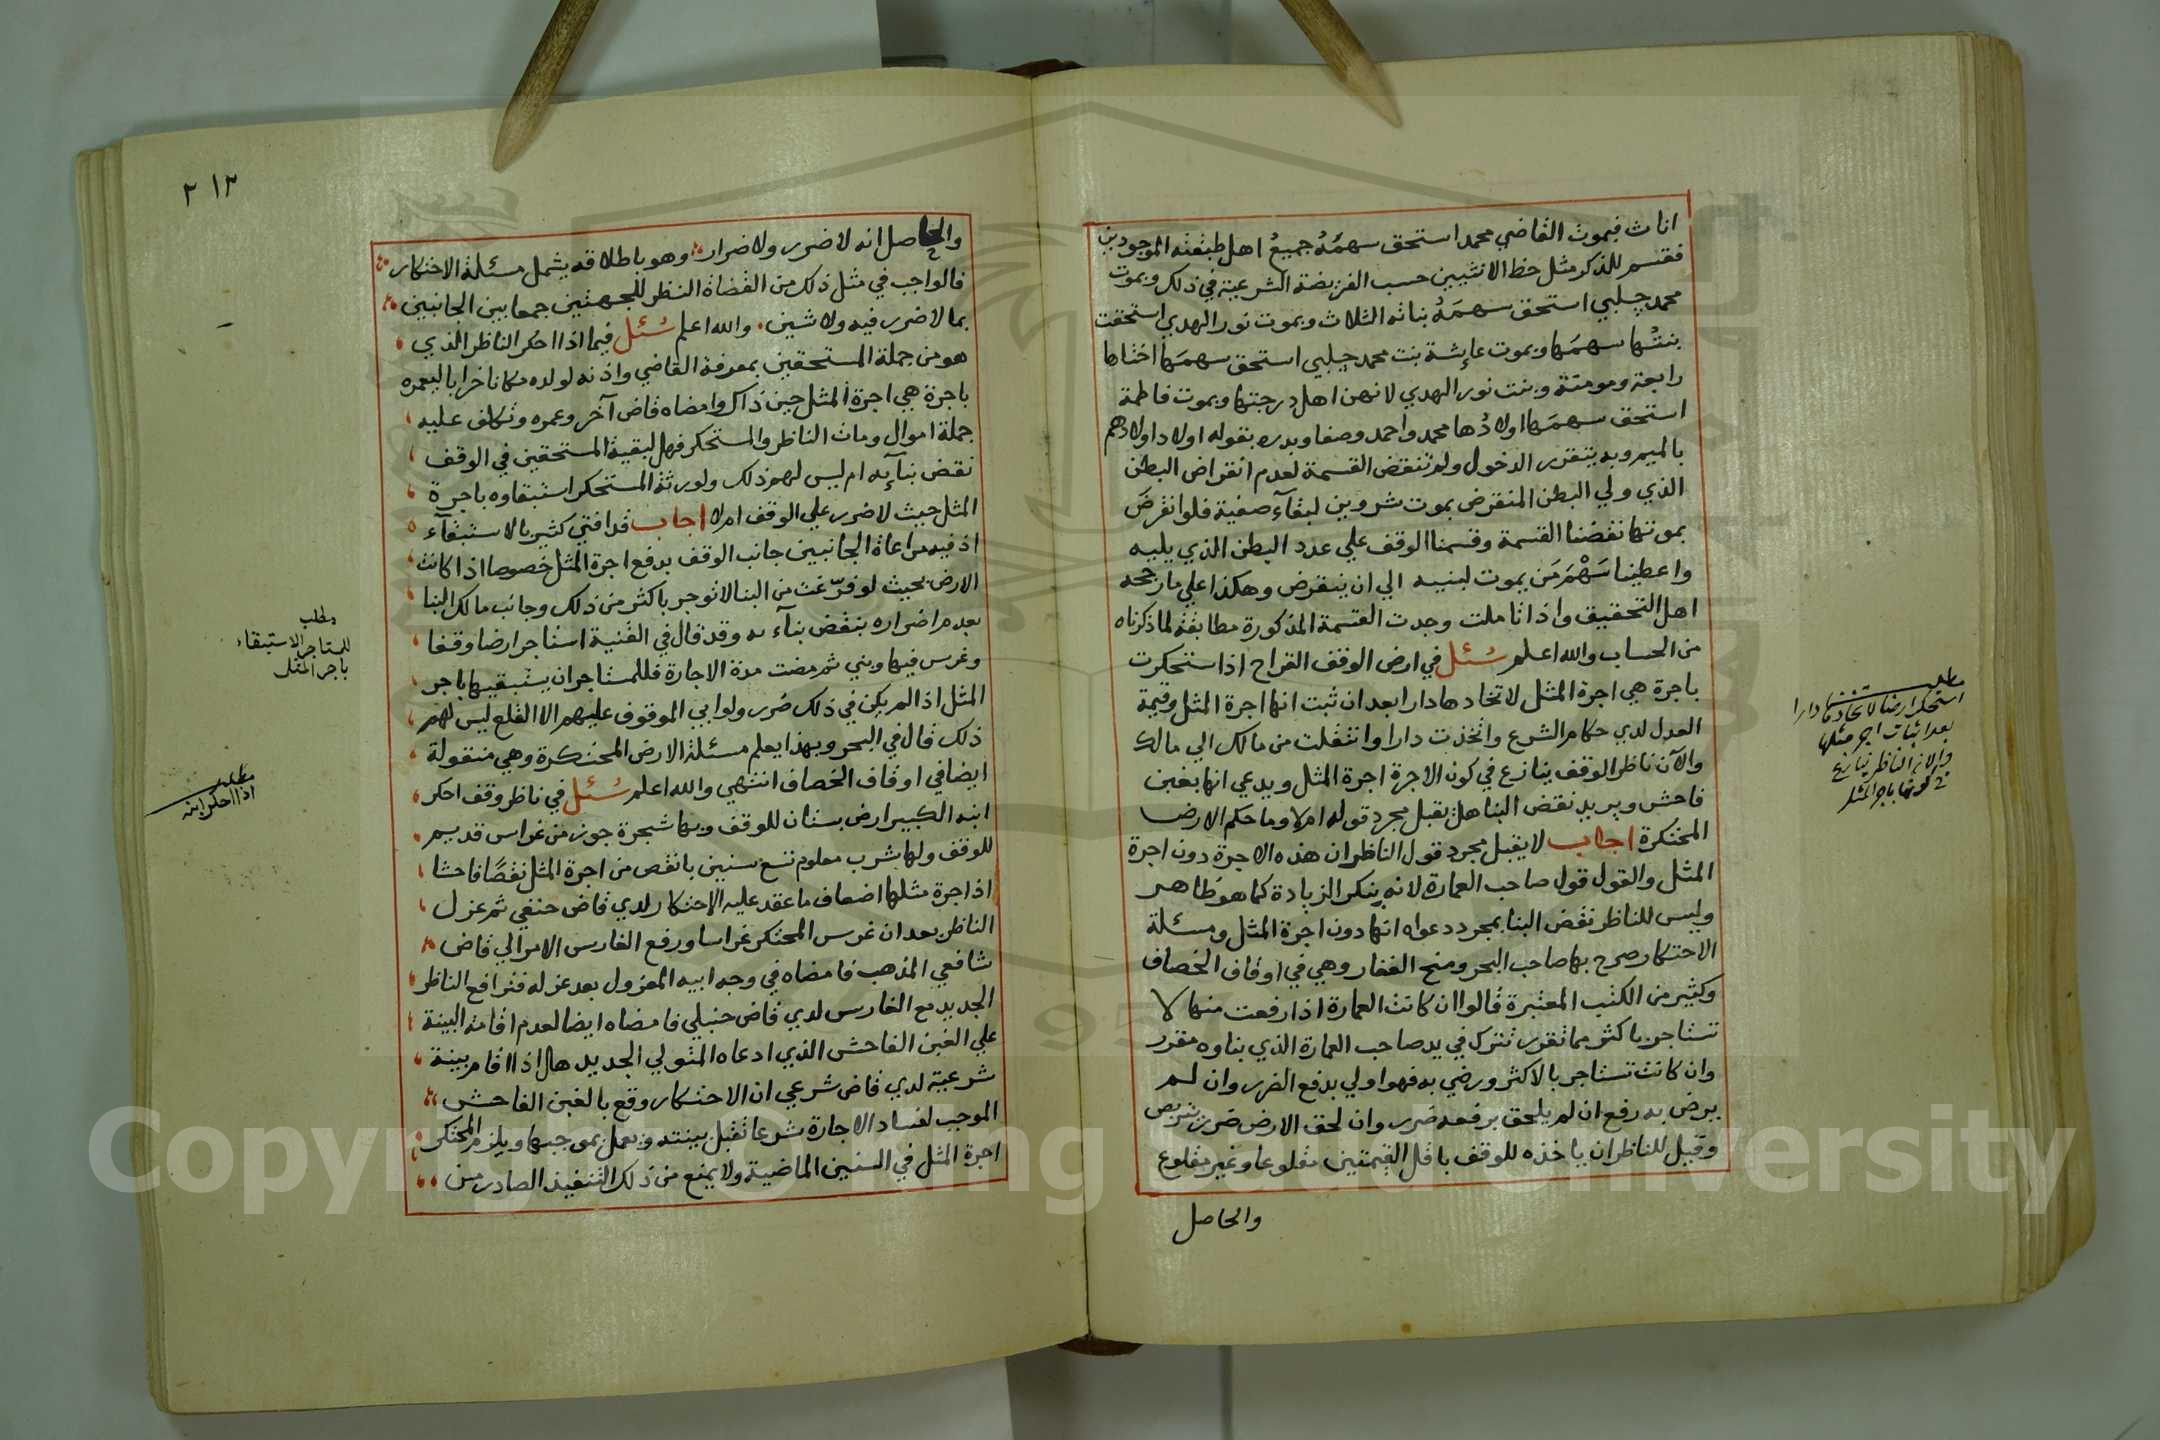 اناث فبموت القاضي محمد استحق سهمَهُ جميعُ اهل طبقته الموجودين
فقسم للذكر مثل حظ الانثيين حسب الفريضة الشرعية في ذلك وبموت
محمد چلبي استحق سهمَهُ بناته الثلاث وبموت نور الهدي استحقت
بنتُها سهمَها وبموت عايشة بنت محمد چلبي استحق سهمَها اختاها
رابعة ومومنة وبنت نور الهدي لانهن اهل درجتها وبموت فاطمة
استحق سهمَها اولادُها محمد واحمد وصفا وبدره بقوله اولاد اولادهم
بالميم وبه يتقرر الدخول ولم تنتقض القسمة لعدم انقراض البطن
الذي ولي البطن المنقرض بموت شروين لبقآء صفية فلو انقرض
بموتها نقضنا القسمة وقسمنا الوقف علي عدد البطن الذي يليه
واعطينا سَهْمَ مَن يموت لبنيه الي ان ينقرض وهكذا علي ما رجحه
اهل التحقيق واذا تاملت وجدت القسمة المذكورة مطابقة لما ذكرناه
من الحساب والله اعلم سُئل في ارض الوقف القراح اذا ستحكرت
باجرة هي اجرة المثل لاتخاذها دارا بعد ان ثبت انها اجرة المثل وقيمة
العدل لدي حكام الشرع واتخذت دارا وانتقلت من مالك الي مالك
والآن ناظر الوقف ينازع في كون الاجرة اجرة المثل ويدعي انها بغبن
فاحش ويريد نقض البنا هل يقبل مجرد قوله ام لا وما حكم الارض
المحتكرة اجاب لا يقبل مجرد قول الناظر ان هذه الاجرة دون اجرة
المثل والقول قول صاحب العمارة لانه ينكر الزيادة كما هو ظاهر
وليس للناظر نقض البنا بمجرد دعواه انها دون اجرة المثل ومسئلة
الاحتكار صرح بها صاحب البحر ومنح الغفار وهي في اوقاف الخصاف
وكثير من الكتب المعتبرة قالوا ان كانت العمارة اذا رفعت منها لا
تستاجر باكثر مما تقرر تترك في يد صاحب العمارة الذي بناه مقرر
وان كانت تستاجر بالاكثر ورضي به فهو اولي بدفع الضرر وان لم
يرض به رفع ان لم يلحق برفعه ضرر وان لحق الارض ضرر يتربص
وقيل للناظر ان ياخذه للوقف باقل القيمتين مقلوعا وغير مقلوع
والحاصل
مطلب
استحكر ارضا لاتخاذها دارا
بعد اثبات اجر مثلها
والان الناظر ينازع
في كونها باجر المثل
٢١٣
والحاصل انه لا ضرر ولا ضرار وهو باطلاقه يشمل مسئلة الاحتكار
فالواجب في مثل ذلك من القضاة النظر للجهتين جمعا بين الجانبين
بما لا ضرر فيه ولا شين والله اعلم سُئل فيما اذا احكر الناظر الذي
هو من جملة المستحقين بمعرفة القاضي واذنه لولده مكانا خرابا ليعمره
باجرة هي اجرة المثل حين ذاك وامضاه قاض آخر وعمره وتكلف عليه
جملة اموال ومات الناظر والمستحكر فهل لبقية المستحقين في الوقف
نقض بنآيه ام ليس لهم ذلك ولورثة المستحكر استبقاوه باجرة
المثل حيث لا ضرر علي الوقف ام لا اجاب قد افتي كثير بالاستبقآء
اذ فيه مراعاة الجانبين جانب الوقف بدفع اجرة المثل خصوصا اذا كانت
الارض بحيث لو فرّغت من البنا لا توجر باكثر من ذلك وجانب مالك البنا
بعدم اضراره بنقض بنآءه وقد قال في القنية استاجر ارضا وقفا
وغرس فيها وبني ثم مضت مدة الاجارة فللمستاجر ان يستبقيها باجر
المثل اذا لم يكن في ذلك ضرر ولو ابي الموقوف عليهم الا القلع ليس لهم
ذلك قال في البحر وبهذا يعلم مسئلة الارض المحتكرة وهي منقولة
ايضا في اوقاف الخصاف انتهي والله اعلم سُئل في ناظر وقف احكر
ابنه الكبير ارض بستان للوقف وبها شجرة جوز من غراس قديم
للوقف ولها شرب معلوم تسع سنين بانقص من اجرة المثل نقصًا فاحشا
اذ اجرة مثلها اضعاف ما عقد عليه الاحتكار لدي قاض حنفي ثم عزل
الناظر بعد ان غرس المحتكر غراسا ورفع الغارس الامر الي قاض
شافعي المذهب فامضاه في وجه ابيه المعزول بعد عزله فترافع الناظر
الجديد مع الغارس لدي قاض حنبلي فامضاه ايضا لعدم اقامة البينة
علي الغبن الفاحش الذي ادعاه المتولي الجديد هل اذا اقام بينة
شرعية لدي قاض شرعي ان الاحتكار وقع بالغبن الفاحش
الموجب لفساد الاجارة شرعا تقبل بينته ويعمل بموجبها ويلزم المحتكر
اجرة المثل في السنين الماضية ولا يمنع من ذلك التنفيذ الصادر من
مطلب
للمستاجر الاستبقاء
باجر المثل
مطلب
اذا احكر ابنه
Copyright © King Saud University